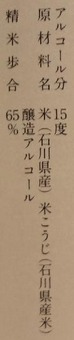 アルコール分 15度
原材料名 米(石川県産)米こうじ(石川県産米)
醸造アルコール
精米歩合 65%